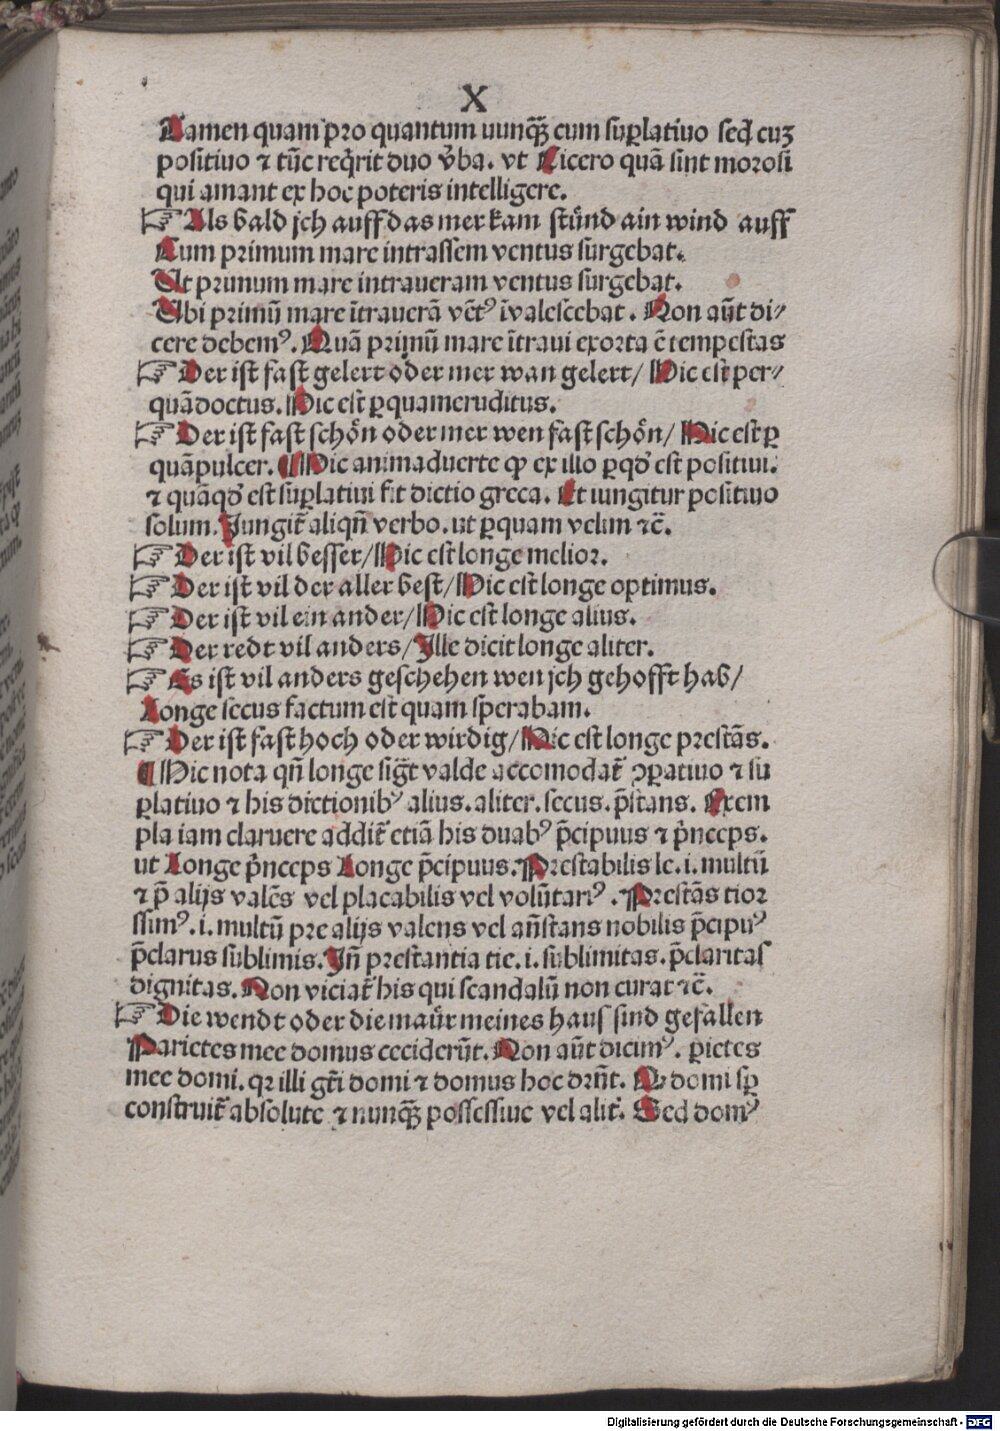 X
Tamen quam pro quantum nunqꝫ cum suꝑlatiuo seqͥ cuꝫ
positiuo ⁊ tūc reqͥrit duo v̓ba. vt Cicero quā sint morosi
qui amant ex hoc poteris intelligere.
☞ Als bald jch auff das mer kam stůnd ain wind auff
Cum primum mare intrassem ventus surgebat.
Ut primum mare intraueram ventus surgebat.
Ubi primū mare ītrauerā vēt⁹ īualescebat. Non aūt di⸗
cere debem⁹. Quā primū mare ītraui exorta ē tempestas
☞ Der ist fast gelert oder mer wan gelert/ Hic est per⸗
quādoctus. Hic est ꝑquameruditus.
☞ Der ist fast schoͤn oder mer wen fast schoͤn/ Hic est ꝑ
quāpulcer. ¶ Hic animaduerte ꝙ ex illo ꝑqd̓ est positiui.
⁊ quāqd̓ est suꝑlatiui fit dictio greca. Et iungitur positiuo
solum. Jungit᷑ aliqn̄ verbo. ut ꝑquam velim ⁊c̄.
☞ Der ist vil besser/ Hic est longe melior.
☞ Der ist vil der aller best/ Hic est longe optimus.
☞ Der ist vil ein ander/ Hic est longe alius.
☞ Der redt vil anders/ Jlle dicit longe aliter.
☞ Es ist vil anders geschehen wen jch gehofft hab/
Longe secus factum est quam sperabam.
☞ Der ist fast hoch oder wirdig/ Hic est longe prestās.
¶ Hic nota qn̄ longe sigt᷑ valde accomodat᷑ ꝯꝑatiuo ⁊ su
ꝑlatiuo ⁊ his dictionib⁹ alius. aliter. secus. p̄stans. Exem
pla iam claruere addit᷑ etiā his duab⁹ p̄cipuus ⁊ p̓nceps.
ut Longe p̓nceps Longe p̄cipuus. Prestabilis le. i. multū
⁊ p̄ alijs valēs vel placabilis vel volūtari⁹. Prestās tior
ssim⁹. i. multū pre alijs valens vel an̄stans nobilis p̄cipu⁹
p̄clarus sublimis. Jn̄ prestantia tie. i. sublimitas. p̄claritas
dignitas. Non viciat᷑ his qui scandalū non curat ⁊c̄.
☞ Die wendt oder die maůr meines haus sind gefallen
Parietes mee domus ceciderūt. Non aūt dicim⁹. ꝑietes
mee domi. qꝛ illi gt̄i domi ⁊ domus hoc drn̄t. Qꝫ domi sꝑ
construit᷑ absolute ⁊ nunqꝫ possessiue vel alit᷑. Sed dom⁹
Digitalisierung gefördert durch die Deutsche Forschungsgemeinschaft - DFG